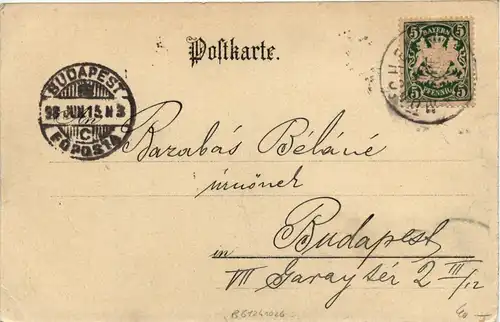 Postkarte.
BAYERN
5 5
5 PFENNIG 5
BUDAPEST
98 JUN. 15. N 3
C
FŐPOSTA
Barabás Béláné
úrnőnek
in Budapest
VII Garay tér 2 III/12